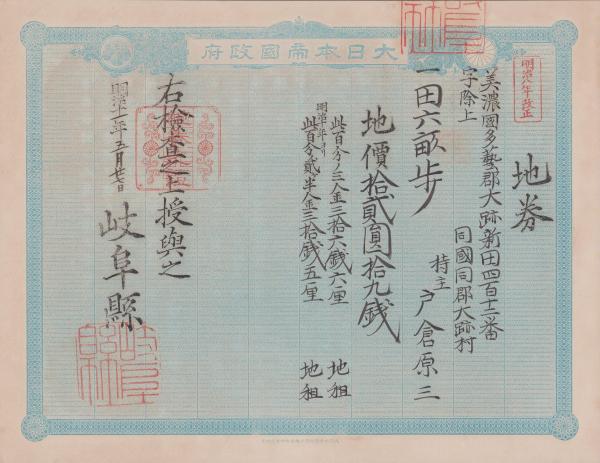 府政國帝本日大
明治八年改正
地券
美濃國多藝郡大跡新田四百十二番
字除上
同國同郡大跡村
持主 戸倉原三
一田六畝歩
地價拾貳圓拾九銭
此百分ノ三金三拾六銭六厘 地租
明治十年ヨリ
此百分貳半金三拾銭五厘 地租
右檢查之上授與之
明治十一年五月廿七日
岐阜縣